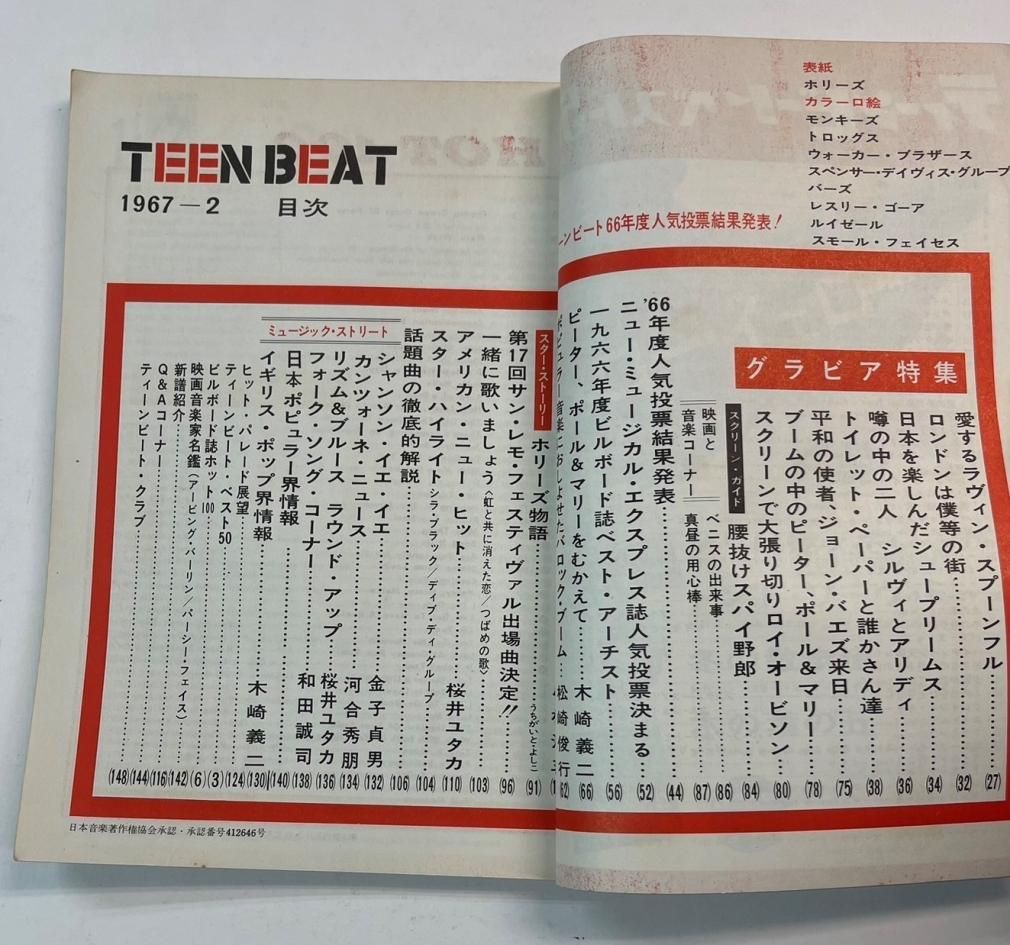 TEEN BEAT
1967—2 目次
表紙
ホリーズ
カラー口絵
モンキーズ
トロッグス
ウォーカー・ブラザース
スペンサー・デイヴィス・グループ
バーズ
レスリー・ゴーア
ルイゼール
スモール・フェイセス
ンビート66年度人気投票結果発表!
グラビア特集
愛するラヴィン・スプーンフル (27)
ロンドンは僕等の街 (32)
日本を楽しんだシュープリームス (34)
噂の中の二人 シルヴィとアリディ (36)
トイレット・ペーパーと誰かさん達 (38)
平和の使者、ジョーン・バエズ来日 (75)
ブームの中のピーター、ポール&マリー (78)
スクリーンで大張り切りロイ・オービソン (80)
スクリーン・ガイド
腰抜けスパイ野郎 (84)
映画と音楽コーナー
ベニスの出来事 (86)
真昼の用心棒 (87)
'66年度人気投票結果発表 (44)
ニュー・ミュージカル・エクスプレス誌人気投票決まる (52)
一九六六年度ビルボード誌ベスト・アーチスト (56)
ピーター、ポール&マリーをむかえて 木崎義二 (66)
ポピュラー音楽におしよせたバロック・ブーム 松崎俊行 62)
スター・ストーリー
ホリーズ物語 うちがいと・よしこ (91)
第17回サン・レモ・フェスティヴァル出場曲決定!! (96)
一緒に歌いましょう〈虹と共に消えた恋/つばめの歌〉 (103)
アメリカン・ニュー・ヒット 桜井ユタカ (110)
スター・ハイライト シラ・ブラック/ディブ・ディ・グループ (104)
話題曲の徹底的解説 (106)
ミュージック・ストリート
シャンソン・イエ・イエ 金子貞男 (132)
カンツォーネ・ニュース 河合秀朋 (134)
リズム&ブルース ラウンド・アップ 桜井ユタカ (136)
フォーク・ソング・コーナー 和田誠司 (138)
日本ポピュラー界情報 (140)
イギリス・ポップ界情報 木崎義二 (130)
ヒット・パレード展望 (124)
ティーンビート・ベスト50 (3)
ビルボード誌ホット100 (6)
映画音楽家名鑑(アービング・バーリン/パーシーフェイス) (142)
新譜紹介 (116)
Q&Aコーナー (144)
ティーンビート・クラブ (148)
日本音楽著作権協会承認・承認番号412646号